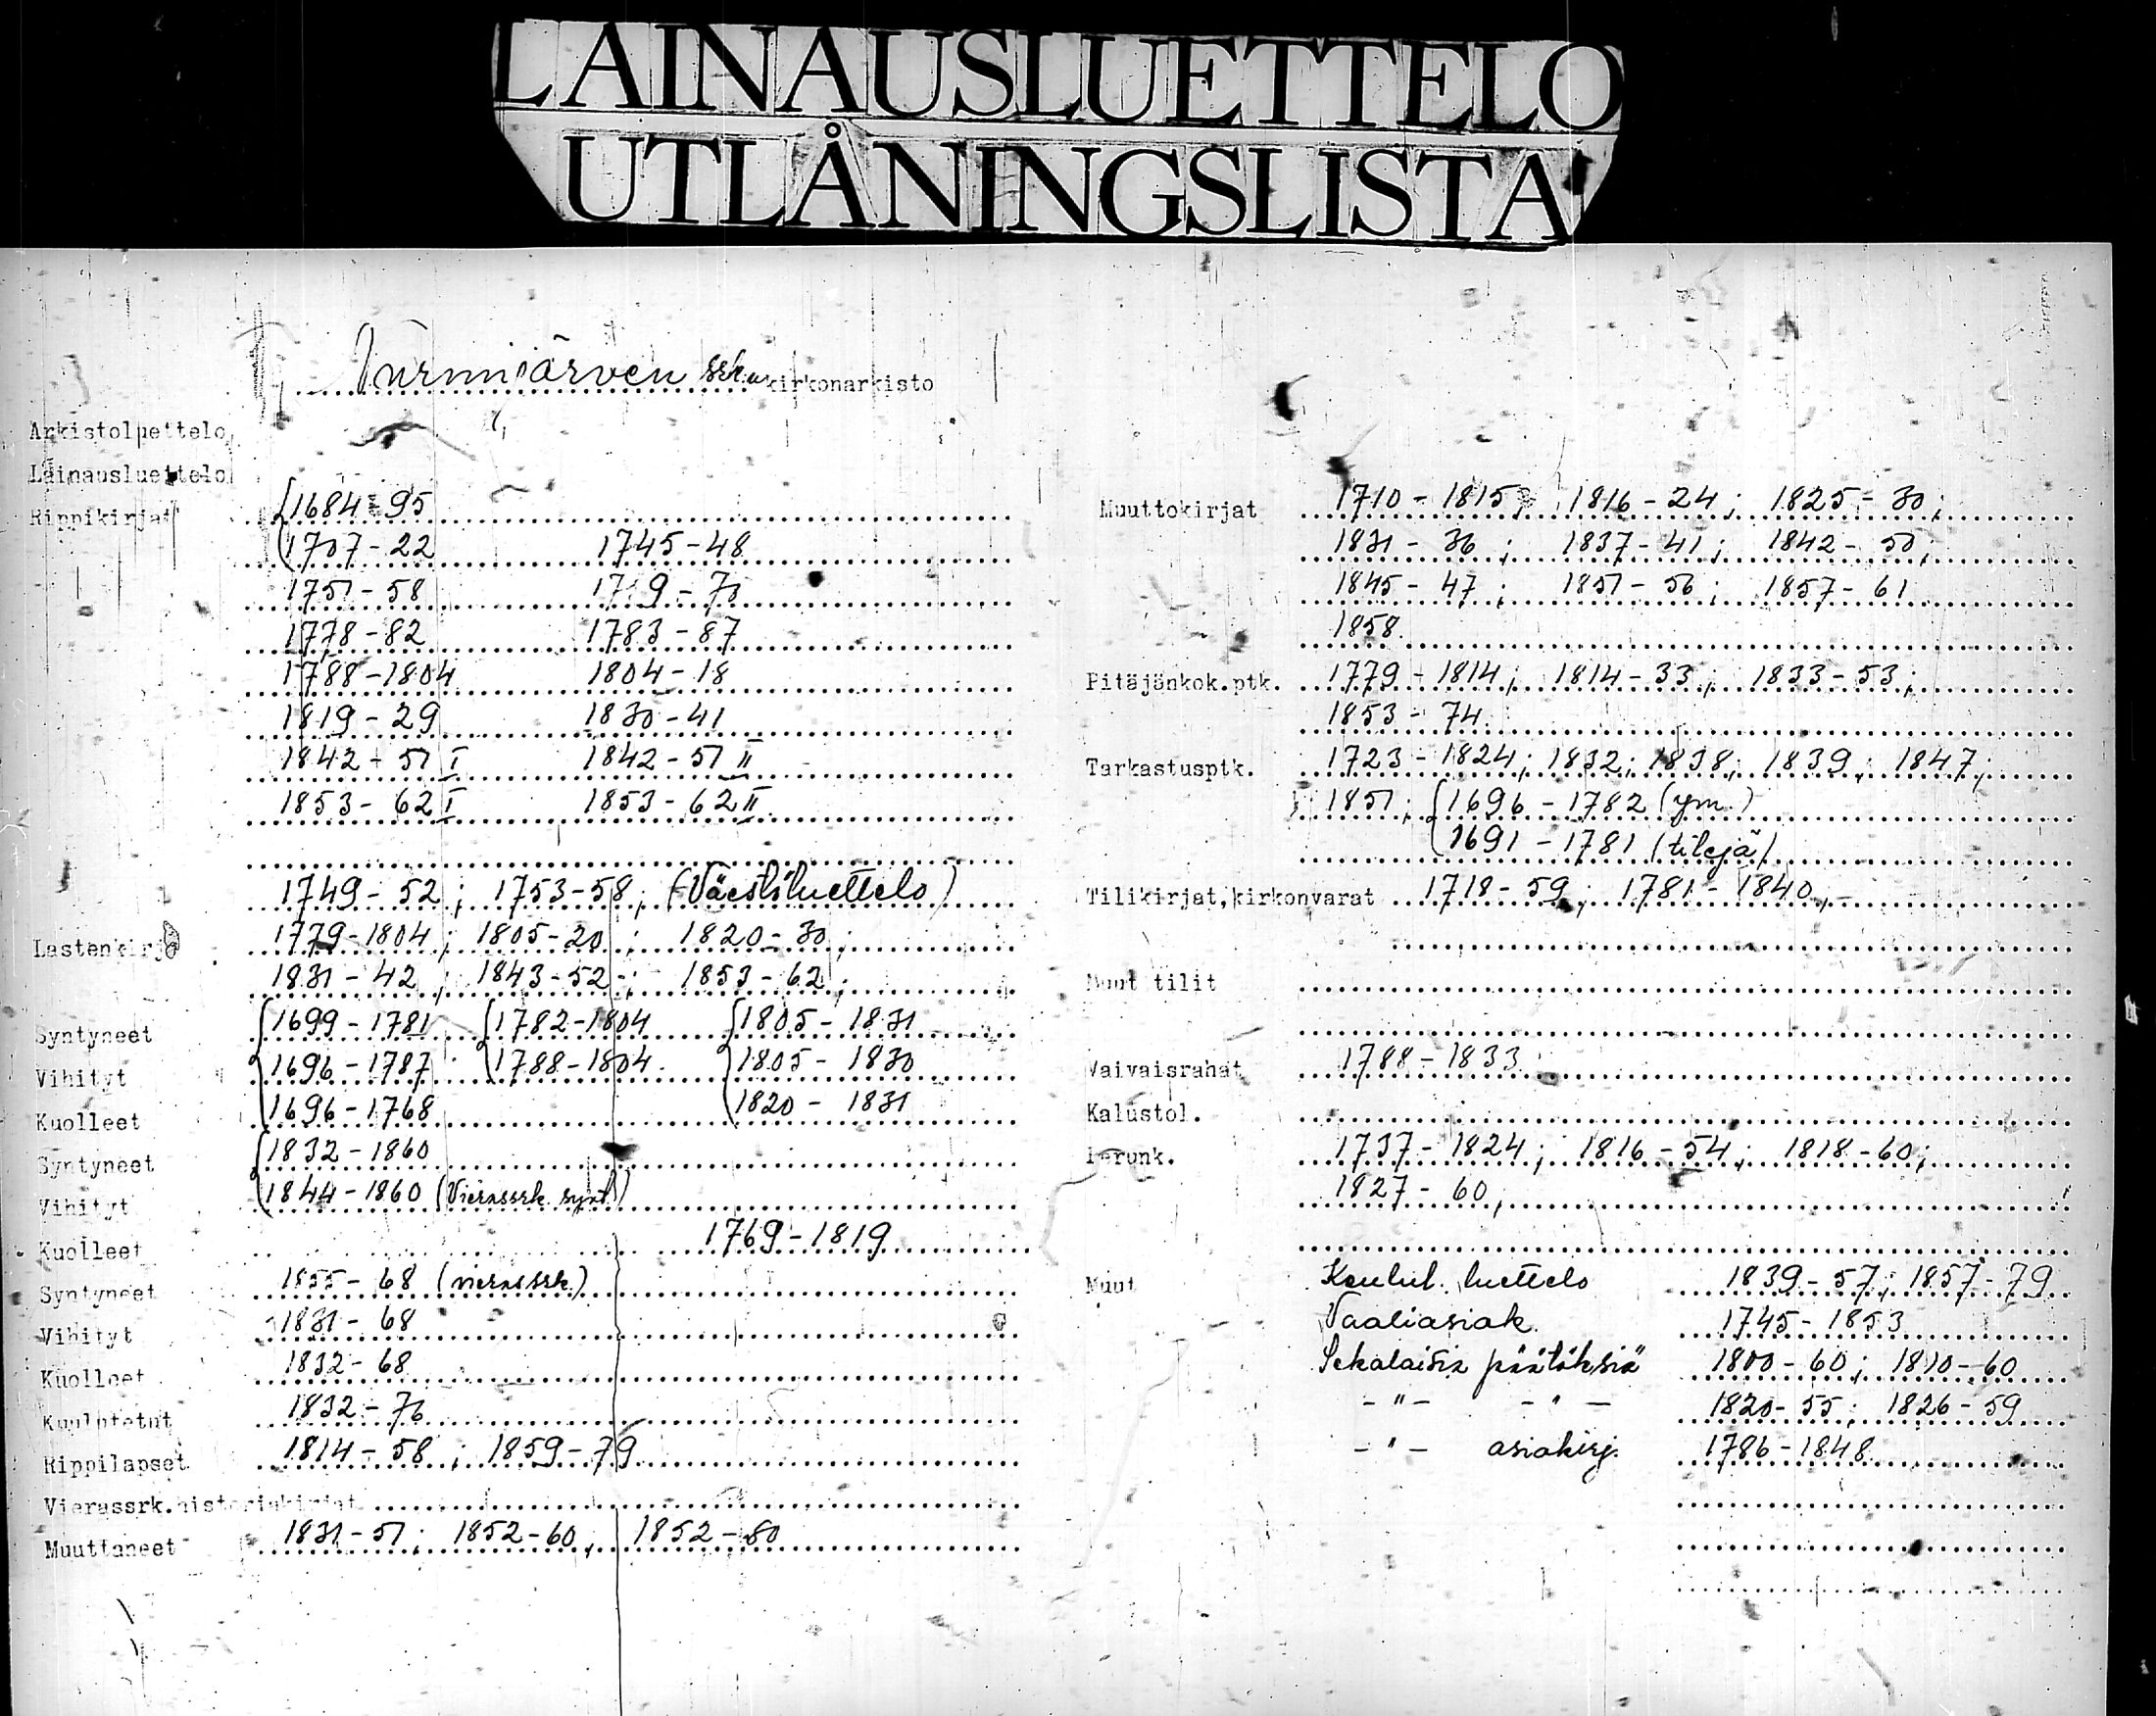 LAINAUSLUETTELO
UTLÅNINGSLISTA
Nurmijärven srk:n kirkonarkisto
Arkistoluettelo
Lainausluettelo
Rippikirjat 1684-95
1707-22 1745-48
1751-58
1778-82 1783-87
1788-1804 1804-18
1819-29 1830-41
1842-51 I 1842-51 II
1853-62 I 1853-62 II
1749-52; 1753-58; (Väestöluettelo)
Lastenkirja 1779-1804; 1805-20; 1820-30;
1831-42; 1843-52; 1853-62;
Syntyneet 1699-1781 1782-1804 1805-1831
Vihityt 1696-1787 1788-1804 1805-1830
Kuolleet 1696-1768 1820-1831
Syntyneet 1832-1860
Vihityt 1844-1860 (Vierassrk. synt.)
Kuolleet 1769-1819
Syntyneet 1855-68 (vierassrk.)
Vihityt 1831-68
Kuolleet 1832-68
Kuulutetut 1832-76
Rippilapset 1814-58; 1859-79
Vierassrk.historiakirjat
Muuttaneet 1831-51; 1852-60, 1852-60
Muuttokirjat 1710-1815; 1816-24; 1825-30;
1831-36; 1837-41; 1842-50;
1845-47; 1851-56; 1857-61
1858.
Pitäjänkok.ptk. 1779-1814; 1814-33; 1833-53;
1853-74.
Tarkastusptk. 1723-1824; 1832; 1838; 1839; 1847;
1851; 1696-1782 (ym.)
1691-1781 (tilejä)
Tilikirjat, kirkonvarat 1718-59; 1781-1840,
Muut tilit
Vaivaisrahat 1788-1833
Kalustol.
Perunk. 1737-1824; 1816-54; 1818-60;
1827-60,
Muut Kuulut. luettelo 1839-57; 1857-79
Vaaliasiak. 1745-1853
Sekalaisia päätöksiä 1800-60; 1810-60
-"- -"- 1820-55; 1826-59
-"- asiakirj. 1786-1848